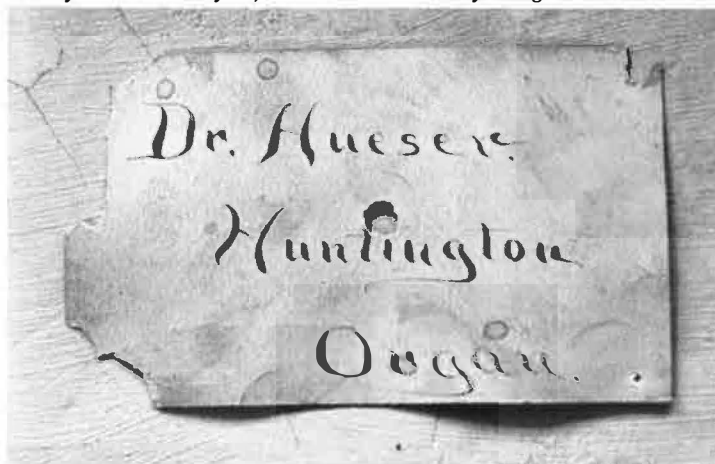 Dr. Hueser.
Huntington
Organ.